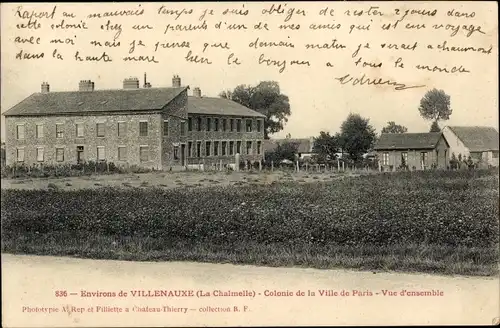 Rapport au mauvais temps je suis obliger de rester 2 jours dans
cette colonie chez un parents d'un de mes amies qui est en voyage
avec moi mais je pense que demain matin je serai a chaumont
dans la haute marne bien le bonjour a tous le monde
Adrien
836 - Environs de VILLENAUXE (La Chalmelle) - Colonie de la Ville de Paris - Vue d'ensemble
Phototype A. Rep et Filliette a Château-Thierry — collection R. F.